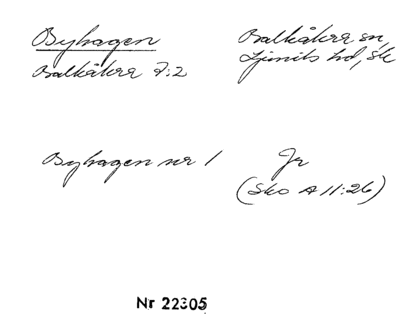 Byhagen
Balkåkra 7:2
Balkåkra sn,
Ljunits hd, Sk
Byhagen nr 1
Jr
(Sko A 11:26)
Nr 22305